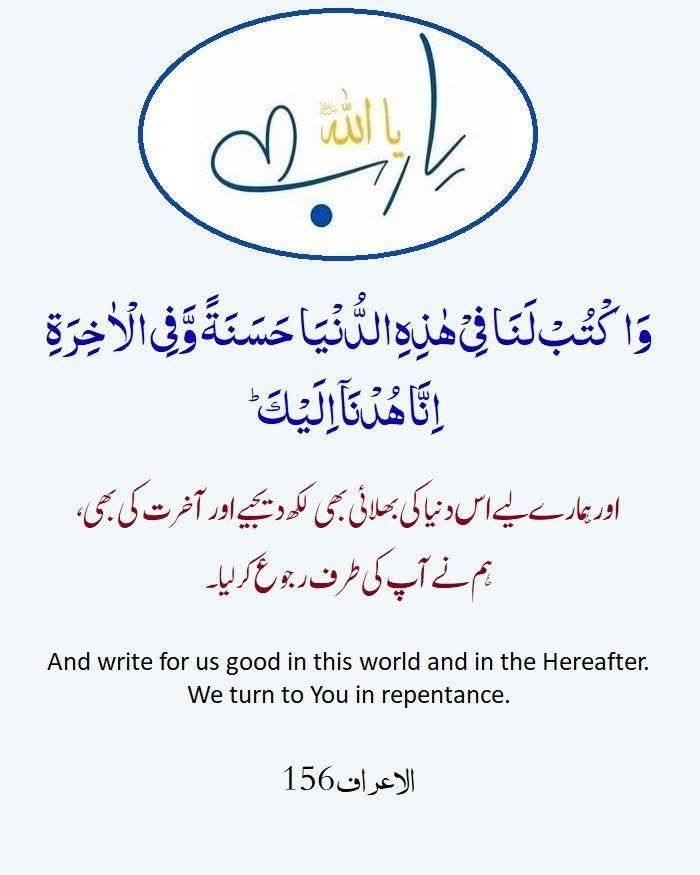 يا الله
يا رب
وَاكْتُبْ لَنَا فِيْ هٰذِهِ الدُّنْيَا حَسَنَةً وَّفِي الْاٰخِرَةِ
اِنَّا هُدْنَاۤ اِلَيْكَ ؕ
اور ہمارے لیے اس دنیا کی بھلائی بھی لکھ دیجیے اور آخرت کی بھی،
ہم نے آپ کی طرف رجوع کرلیا۔
And write for us good in this world and in the Hereafter.
We turn to You in repentance.
الاعراف 156